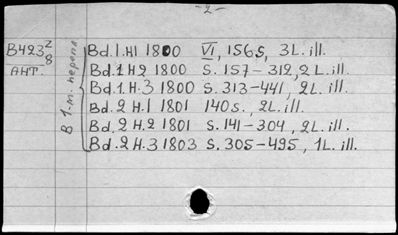 -2-
B423 2/8
АНТ.
В 1-т. перепл
Bd.1.H1 1800 VI, 156 S, 3L. ill.
Bd.1 H2 1800 S. 157-312, 2L. ill.
Bd.1.H.3 1800 S. 313-441, 2L. ill.
Bd.2 H.1 1801 140 S., 2L. ill.
Bd.2 H.2 1801 S. 141-304, 2L. ill.
Bd.2 H.3 1803 S. 305-495, 1L. ill.